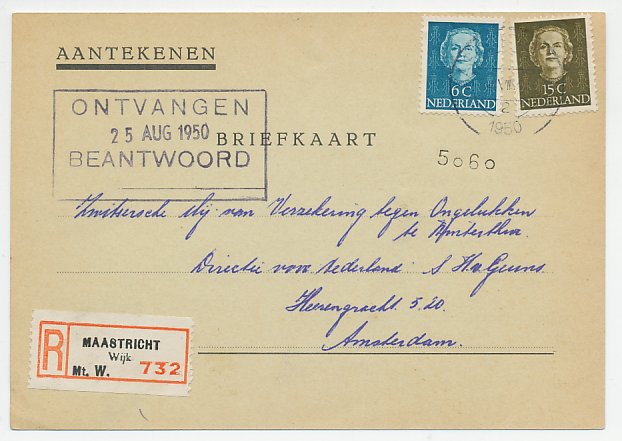 AANTEKENEN
6C
NEDERLAND
15C
NEDERLAND
VIII
2
1950
ONTVANGEN
25 AUG 1950
BEANTWOORD
BRIEFKAART
5060
Zwitsersche Mij van Verzekering tegen Ongelukken
te Winterthur
Directie voor Nederland: S. H. v. Geuns
Heerengracht 520
Amsterdam.
R
MAASTRICHT
Wijk
Mt. W. 732